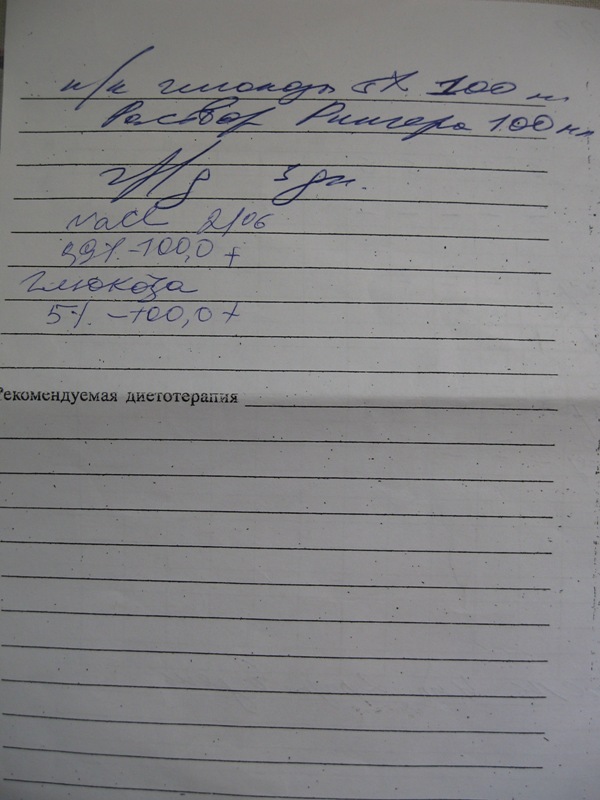 п/к глюкозы 5% 100 мл
Раствор Рингера 100 мл
3 дн.
NaCl 2/06
0,9% -100,0 +
Глюкоза
5% -100,0 +
Рекомендуемая диетотерапия